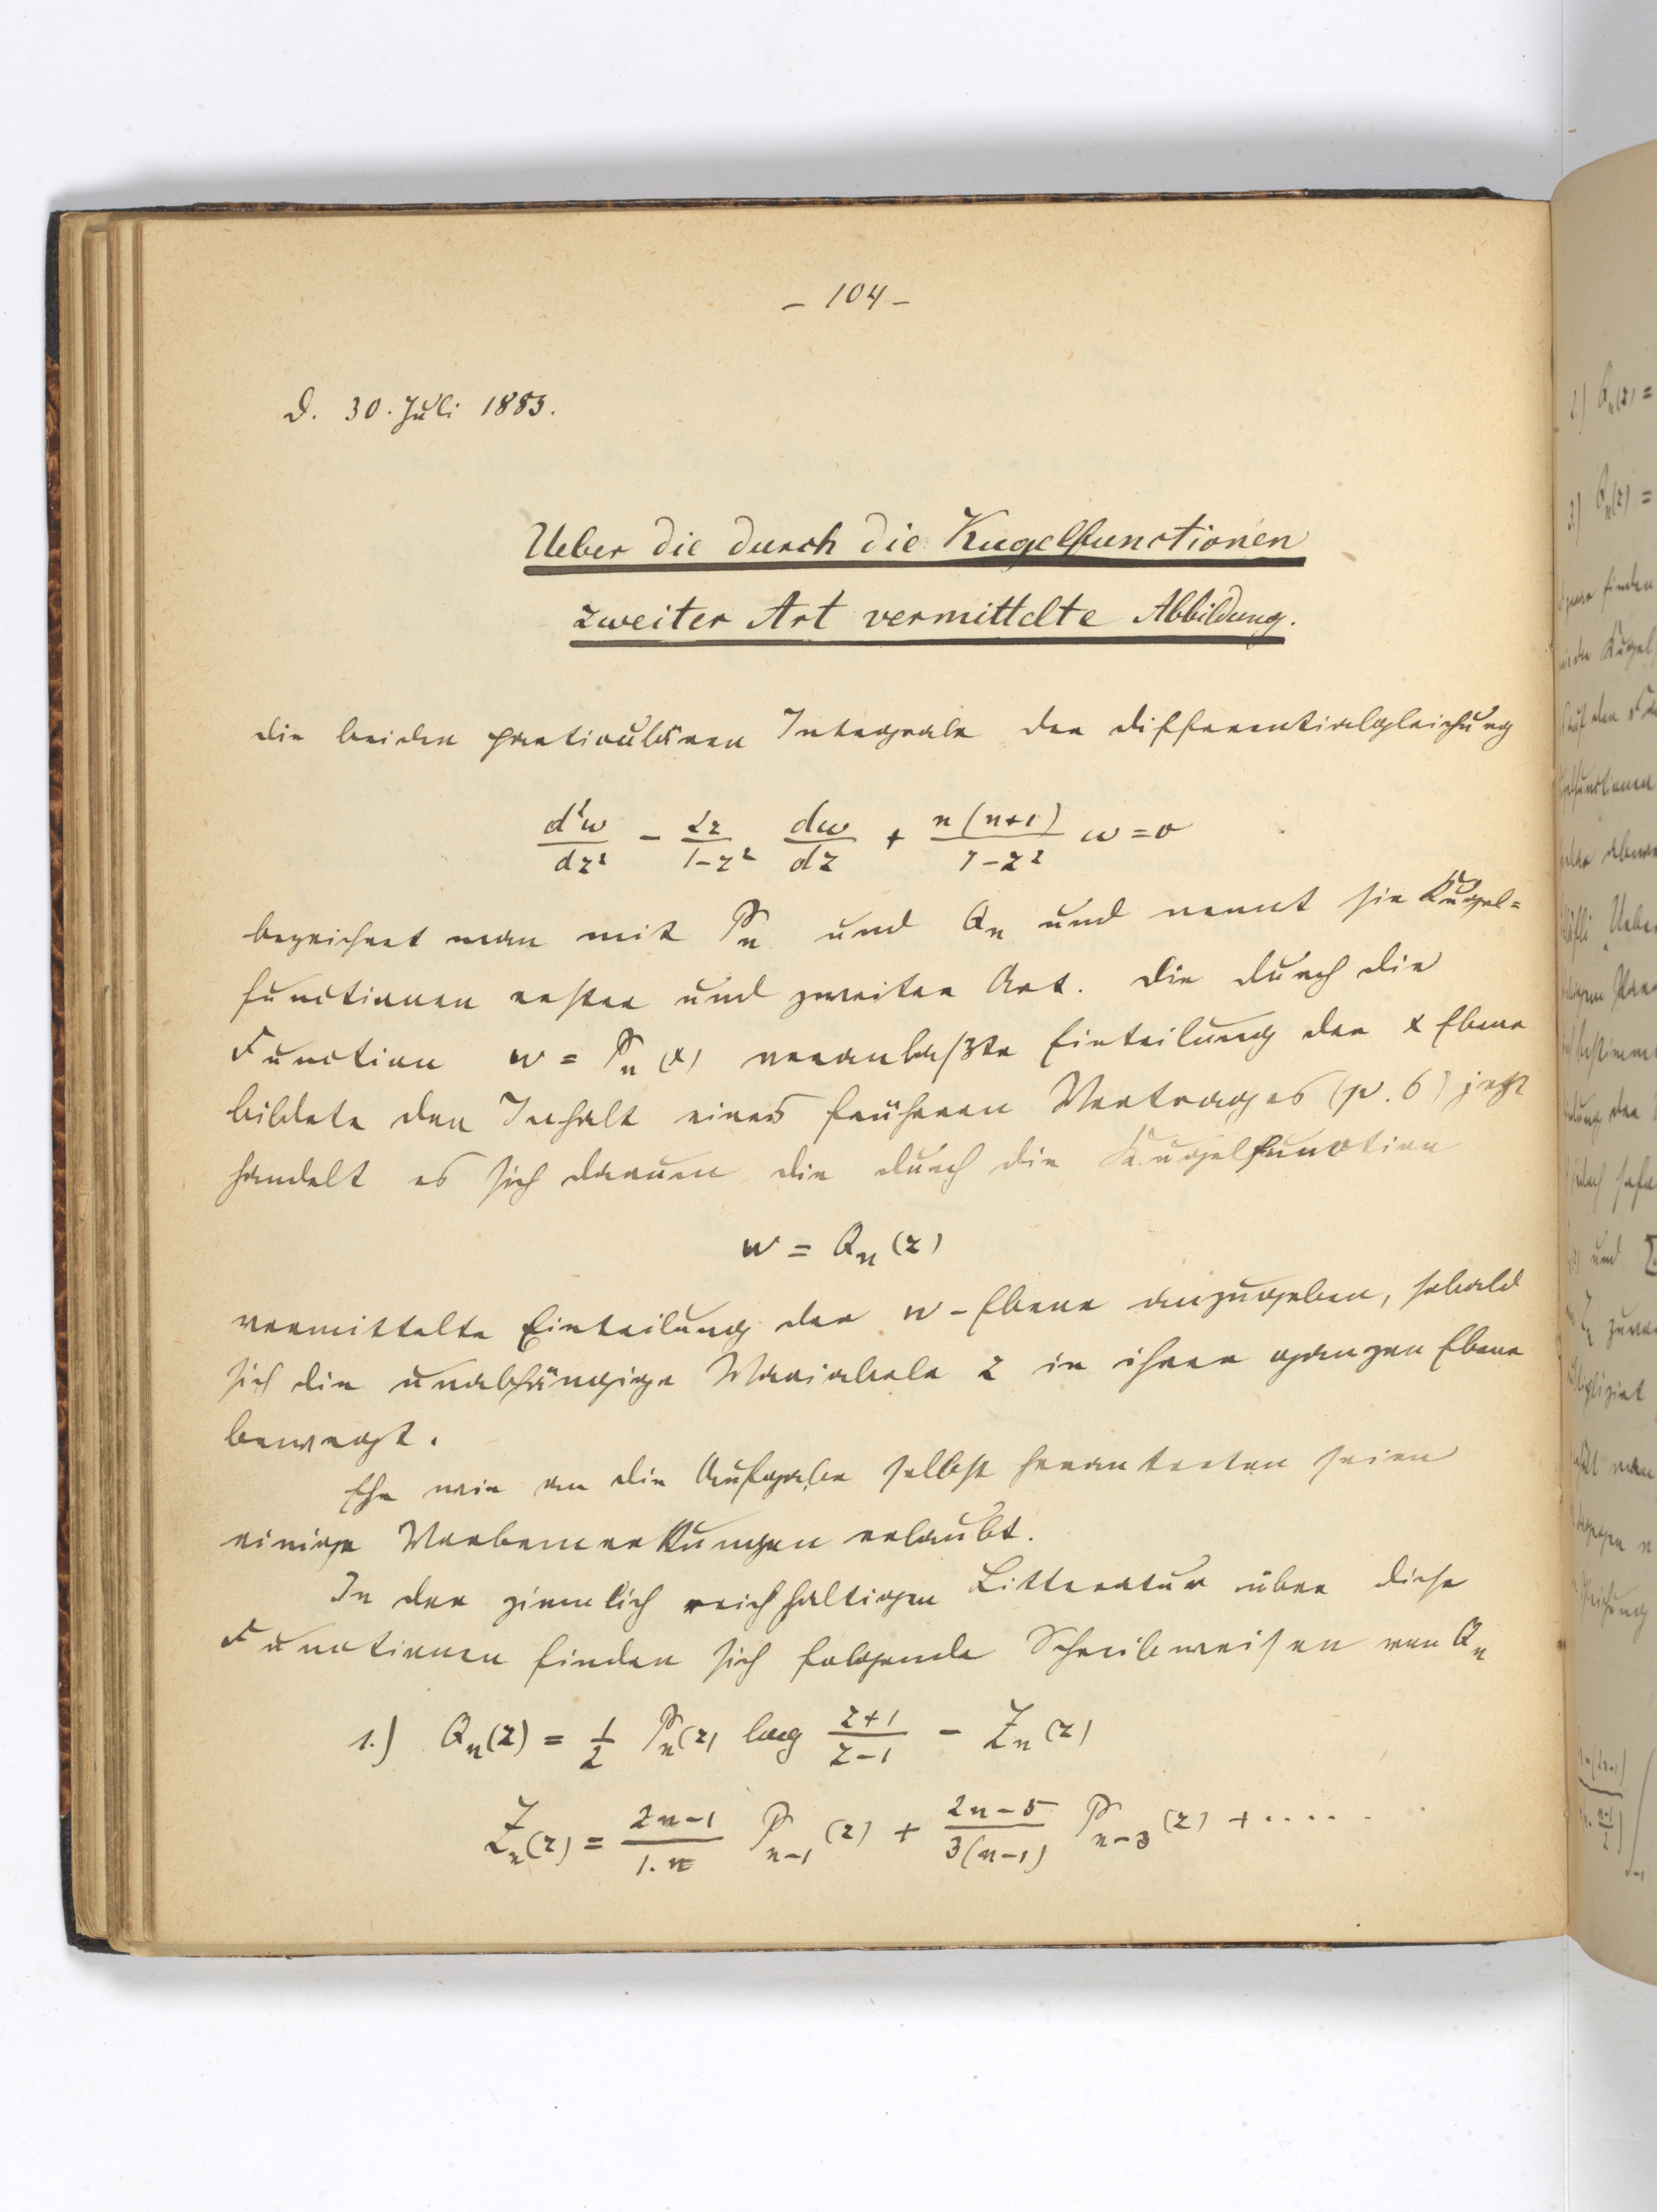 – 104 –
D. 30. Juli 1883.
Ueber die durch die Kugelfunctionen
zweiter Art vermittelte Abbildung.
Die beiden particulären Integrale der Differentialgleichung
d²w/dz² − 2z/1−z² dw/dz + n(n+1)/1−z² w = 0
bezeichnet man mit Pₙ und Qₙ und nennt sie Kugel=
functionen erster und zweiter Art. Die durch die
Function w = Pₙ(x) veranlaßte Einteilung der x Ebene
bildete den Inhalt eines früheren Vortrages (p. 6) jetzt
handelt es sich darum die durch die Kugelfunction
w = Qₙ(z)
vermittelte Einteilung der w-Ebene anzugeben, sobald
sich die unabhängige Variabele z in ihrer ganzen Ebene
bewegt.
Ehe wir an die Aufgabe selbst herantreten seien
einige Vorbemerkungen erlaubt.
In der ziemlich reichhaltigen Litteratur über diese
Functionen finden sich folgende Schreibweisen von Qₙ
1.) Qₙ(z) = 1/2 Pₙ(z) log z+1/z−1 − Zₙ(z)
Zₙ(z) = 2n−1/1.n Pₙ₋₁(z) + 2n−5/3(n−1) Pₙ₋₃(z) + .....